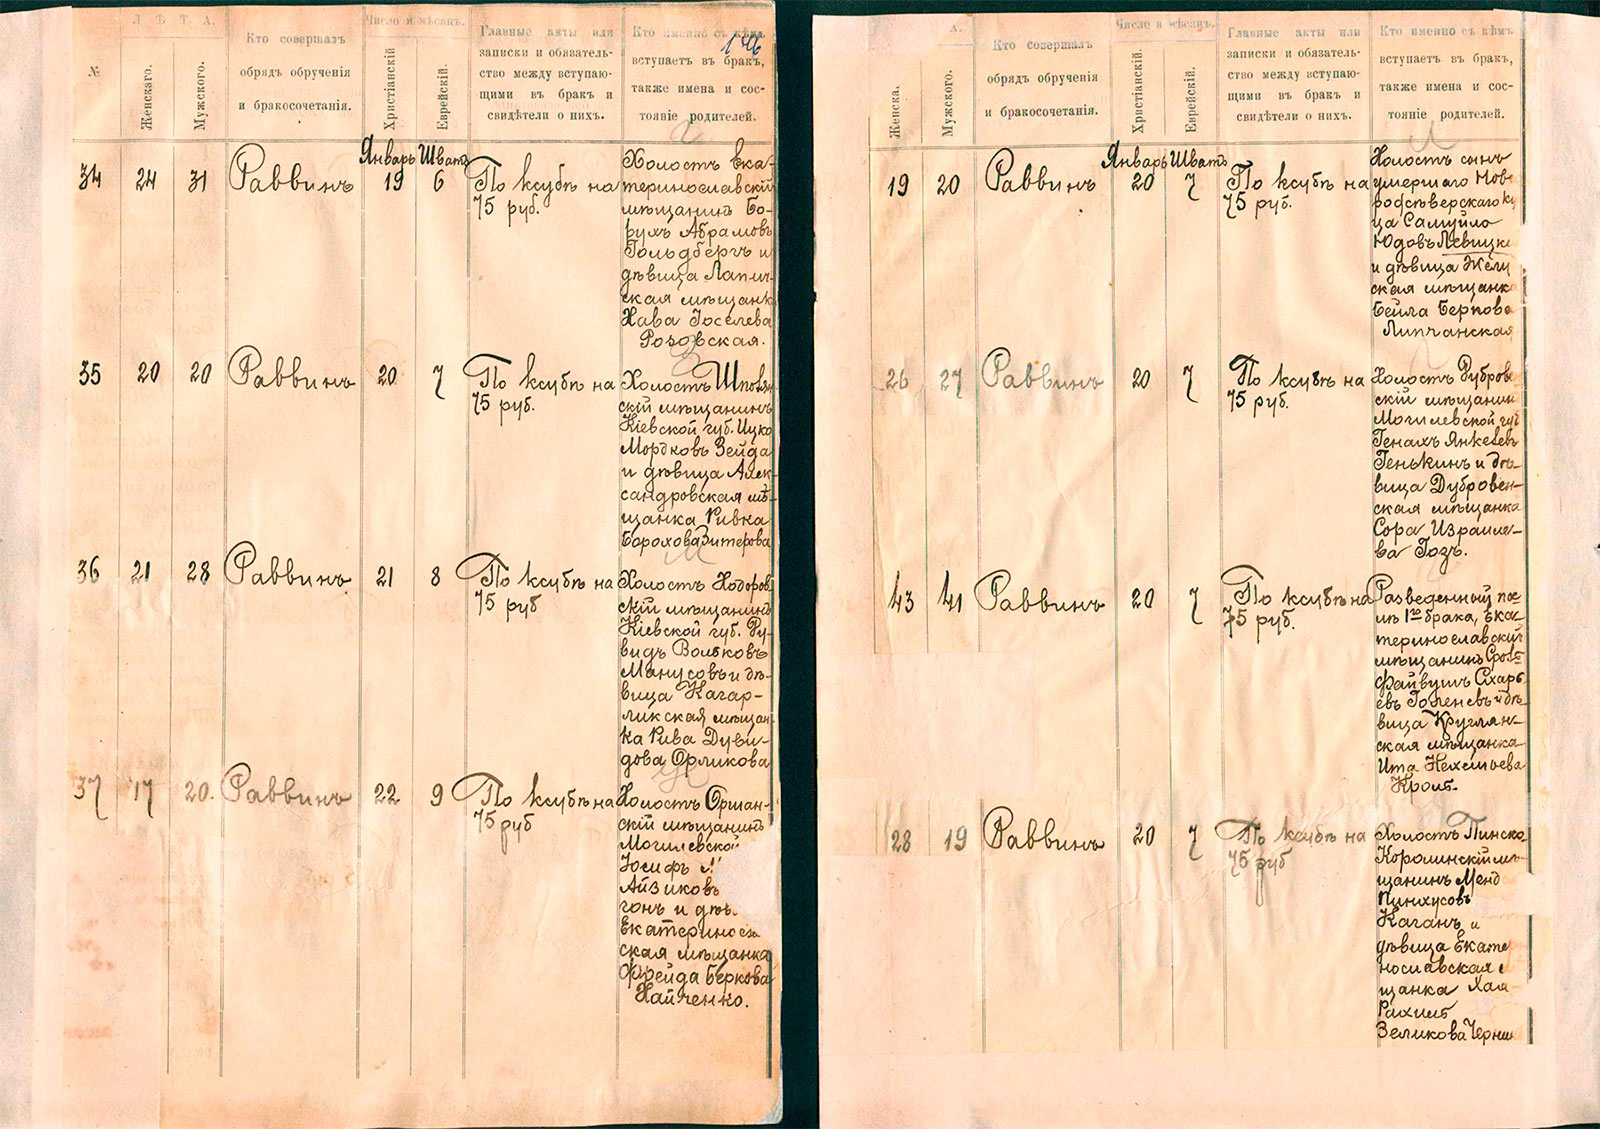 №
Л Ѣ Т А.
Женскаго.
Мужского.
Кто совершалъ
обрядъ обрученія
и бракосочетанія.
Число и мѣсяцъ.
Христіанскій
Еврейскій.
Главные акты или
записки и обязатель-
ство между вступаю-
щими въ бракъ и
свидѣтели о нихъ.
Кто именно съ кѣмъ
вступаетъ въ бракъ,
также имена и сос-
тояніе родителей.
146
34
24
31
Раввинъ
Январь
19
Шватъ
6
По ксубѣ на
75 руб.
Холостъ Ека-
теринославскій
мѣщанинъ Бо-
рухъ Абрамовъ
Гольдбергъ и
дѣвица
ская мѣщанка
Хава Іоселева
Розовская.
35
20
20
Раввинъ
20
7
По ксубѣ на
75 руб.
Холостъ
скій мѣщанинъ
Кіевской губ. Ицко
Мордковъ Зейда
и дѣвица Алек-
сандровская мѣ-
щанка Ривка
Борохова Зитерова
36
21
28
Раввинъ
21
8
По ксубѣ на
75 руб
Холостъ Ходоров
скій мѣщанинъ
Кіевской губ. Ду-
видъ Вольковъ
Манусовъ и дѣ-
вица Кагар-
ликская мѣщан-
ка Рива Дуви-
дова Орликова
37
17
20.
Раввинъ
22
9
По ксубѣ на
75 руб
Холостъ Оршан-
скій мѣщанинъ
Могилевской
Іосифъ
Айзиковъ
гонъ и дѣв
Екатериносла
ская мѣщанка
Фрейда Беркова
Найченко.
А.
Женска.
Мужского.
Кто совершалъ
обрядъ обрученія
и бракосочетанія.
Число и мѣсяцъ.
Христіанскій
Еврейскій.
Главные акты или
записки и обязатель-
ство между вступаю-
щими въ бракъ и
свидѣтели о нихъ.
Кто именно съ кѣмъ
вступаетъ въ бракъ,
также имена и сос-
тояніе родителей.
19
20
Раввинъ
Январь
20
Шватъ
7
По ксубѣ на
75 руб.
Холостъ сынъ
умершаго Нов-
родсѣверскаго ку
ца Самуйло
Юдовъ Левицк
и дѣвица
ская мѣщанка
Бейла Беркова
Липчанская
26
27
Раввинъ
20
7
По ксубѣ на
75 руб.
Холостъ Дубров
скій мѣщанин
Могилевской губ
Генахъ Янкелев
Генькинъ и дѣ-
вица Дубровен-
ская мѣщанка
Сора Израиле-
ва Гозъ.
43
41
Раввинъ
20
7
По ксубѣ на
75 руб.
Разведенный пос
лѣ 1го брака, Ека
теринославскій
мѣщанинъ Сроль
Файвушъ
евъ и дѣ-
вица Круглян-
ская мѣщанка
Ита Нехемьева
Кроль.
28
19
Раввинъ
20
7
По ксубѣ на
75 руб
Холостъ Пинско
Каролинскій мѣ-
щанинъ Менд
Пинхусовъ
Каганъ и
дѣвица Екате
нославская м
щанка Хая
Рахиль
Зеликова Черни